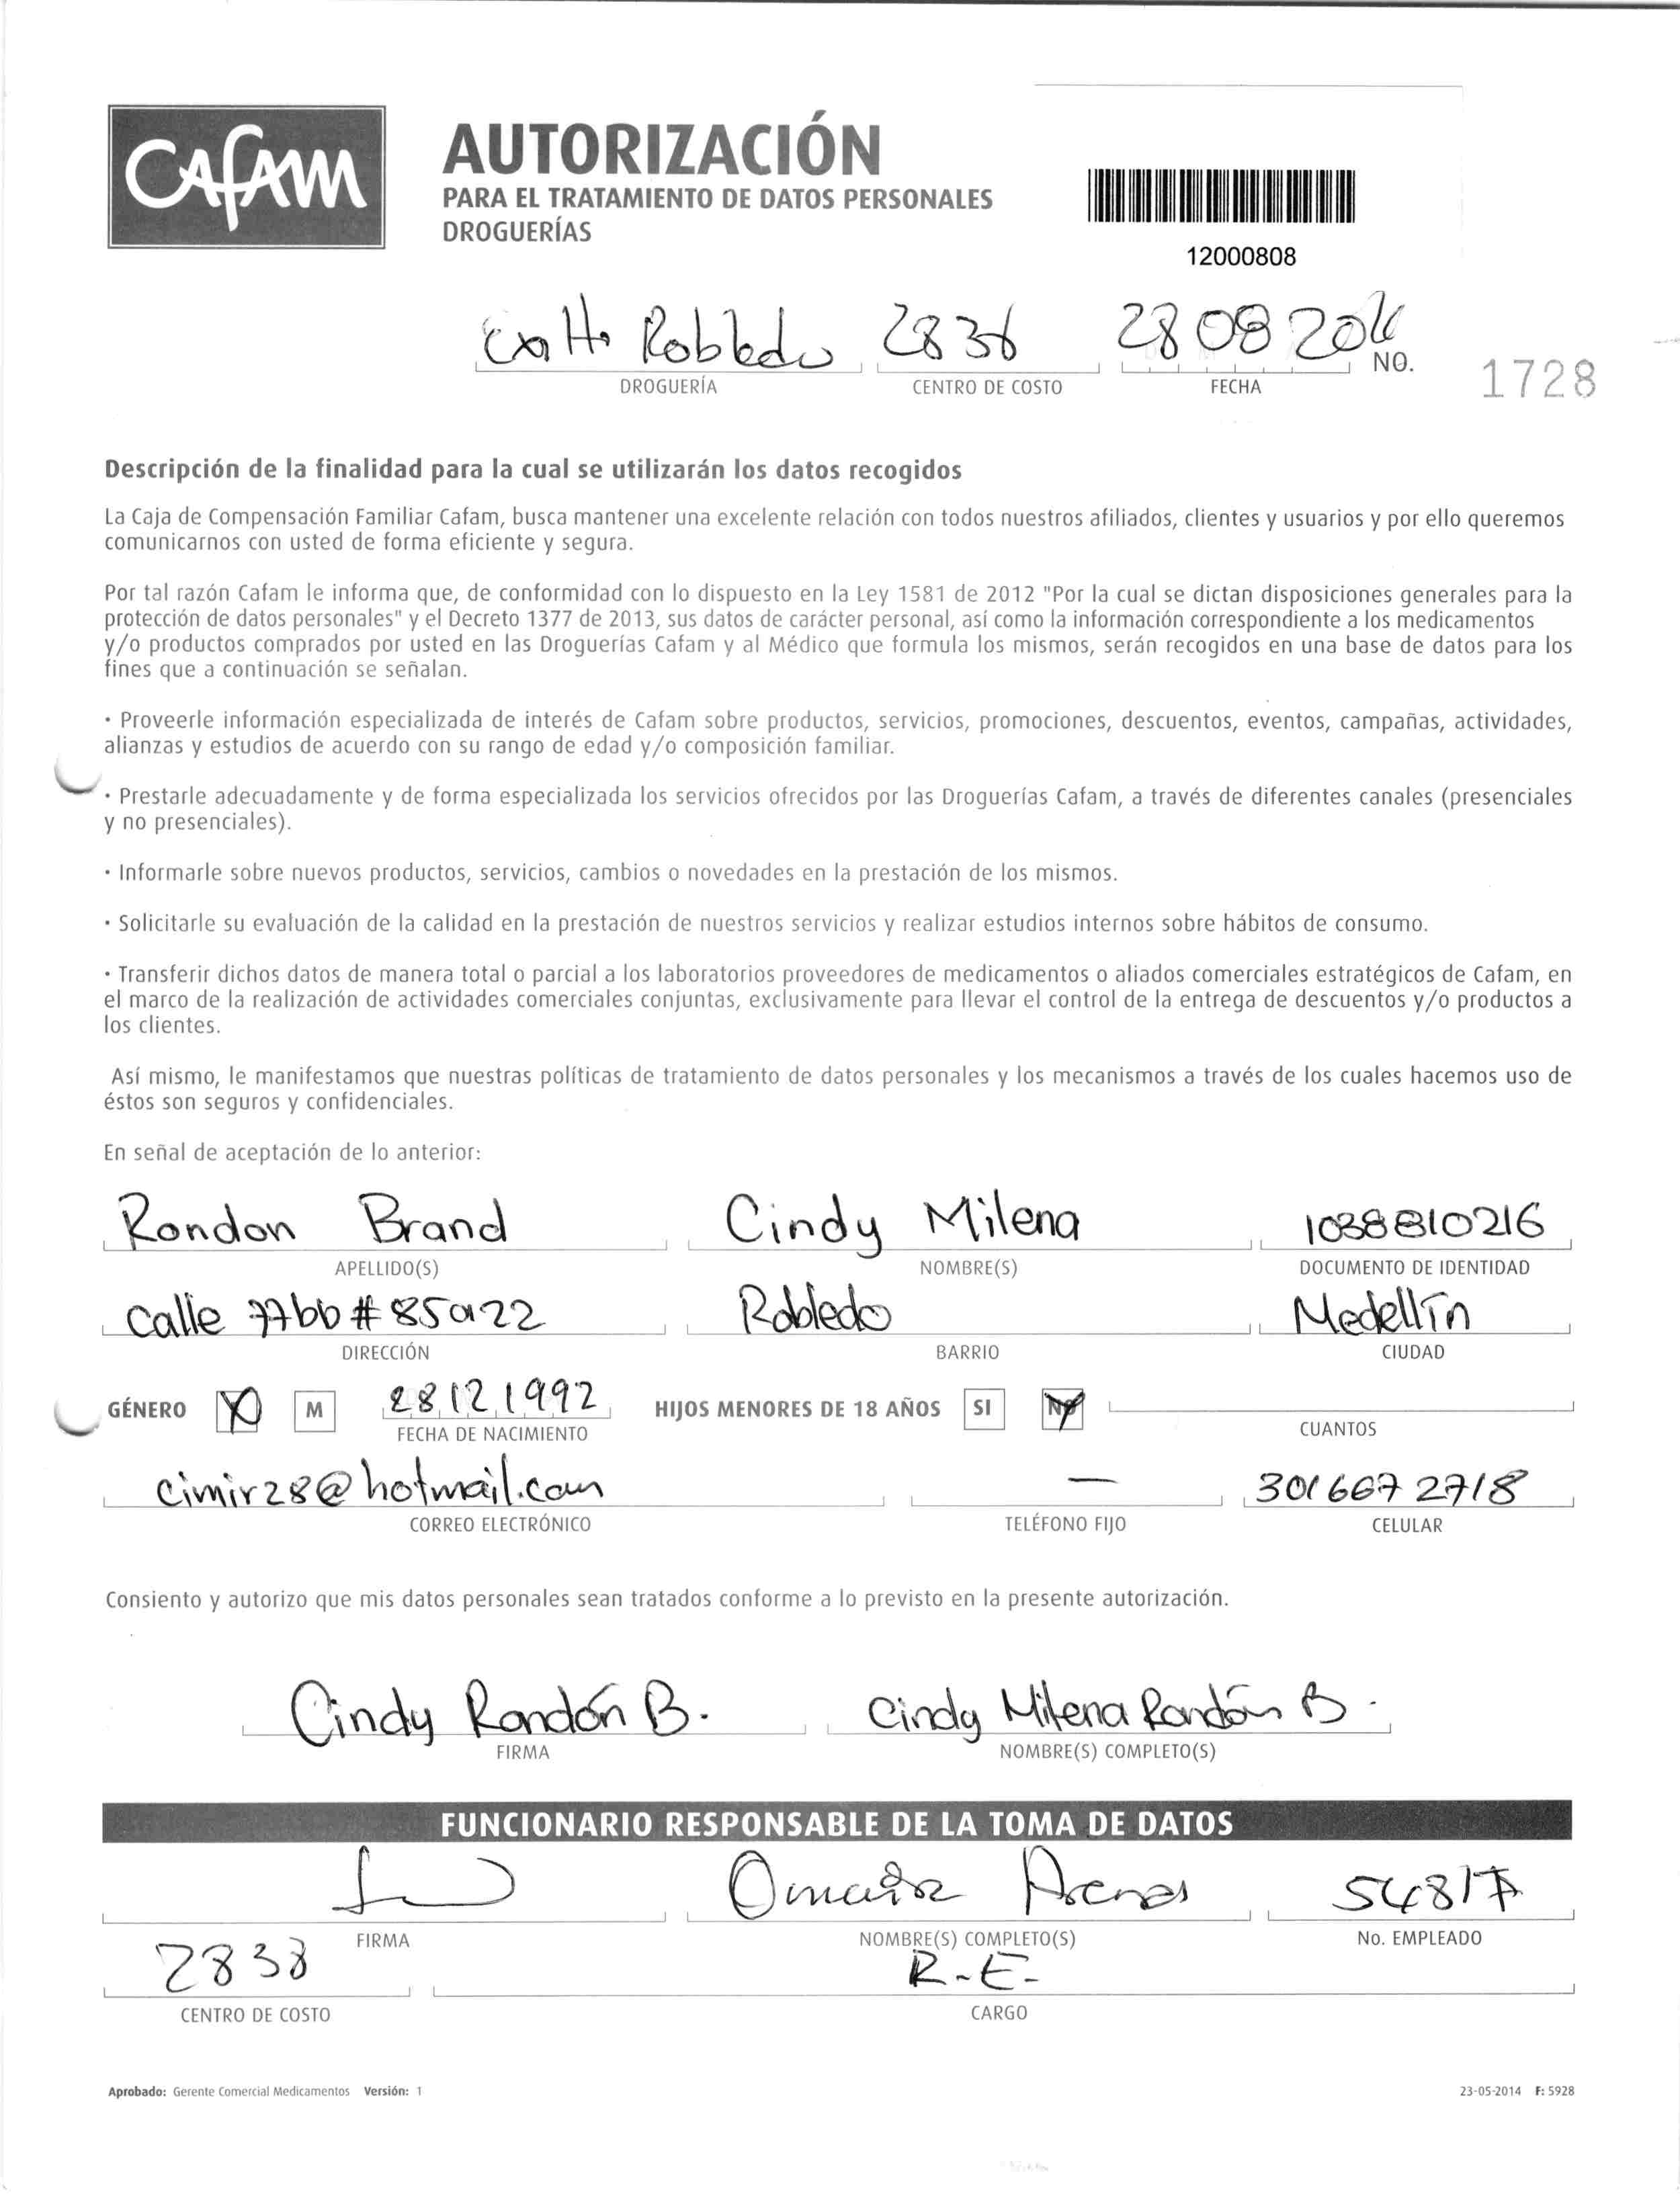 Cafam
AUTORIZACIÓN
PARA EL TRATAMIENTO DE DATOS PERSONALES
DROGUERÍAS
12000808
Robledo 2836 28 08 201
DROGUERÍA CENTRO DE COSTO FECHA NO. 1728
Descripción de la finalidad para la cual se utilizarán los datos recogidos
La Caja de Compensación Familiar Cafam, busca mantener una excelente relación con todos nuestros afiliados, clientes y usuarios y por ello queremos
comunicarnos con usted de forma eficiente y segura.
Por tal razón Cafam le informa que, de conformidad con lo dispuesto en la Ley 1581 de 2012 "Por la cual se dictan disposiciones generales para la
protección de datos personales" y el Decreto 1377 de 2013, sus datos de carácter personal, así como la información correspondiente a los medicamentos
y/o productos comprados por usted en las Droguerías Cafam y al Médico que formula los mismos, serán recogidos en una base de datos para los
fines que a continuación se señalan.
· Proveerle información especializada de interés de Cafam sobre productos, servicios, promociones, descuentos, eventos, campañas, actividades,
alianzas y estudios de acuerdo con su rango de edad y/o composición familiar.
· Prestarle adecuadamente y de forma especializada los servicios ofrecidos por las Droguerías Cafam, a través de diferentes canales (presenciales
y no presenciales).
· Informarle sobre nuevos productos, servicios, cambios o novedades en la prestación de los mismos.
· Solicitarle su evaluación de la calidad en la prestación de nuestros servicios y realizar estudios internos sobre hábitos de consumo.
· Transferir dichos datos de manera total o parcial a los laboratorios proveedores de medicamentos o aliados comerciales estratégicos de Cafam, en
el marco de la realización de actividades comerciales conjuntas, exclusivamente para llevar el control de la entrega de descuentos y/o productos a
los clientes.
Así mismo, le manifestamos que nuestras políticas de tratamiento de datos personales y los mecanismos a través de los cuales hacemos uso de
éstos son seguros y confidenciales.
En señal de aceptación de lo anterior:
Rondon Brand Cindy Milena 1038810216
APELLIDO(S) NOMBRE(S) DOCUMENTO DE IDENTIDAD
Calle 77bb # 85a22 Robledo Medellín
DIRECCIÓN BARRIO CIUDAD
GÉNERO X M 28 12 1992 HIJOS MENORES DE 18 AÑOS SI NO
FECHA DE NACIMIENTO CUANTOS
cimir28@hotmail.com — 301 667 2718
CORREO ELECTRÓNICO TELÉFONO FIJO CELULAR
Consiento y autorizo que mis datos personales sean tratados conforme a lo previsto en la presente autorización.
Cindy Rondón B. Cindy Milena Rondón B.
FIRMA NOMBRE(S) COMPLETO(S)
FUNCIONARIO RESPONSABLE DE LA TOMA DE DATOS
Omaira Arenas 54817
FIRMA NOMBRE(S) COMPLETO(S) No. EMPLEADO
2838 R.E.
CENTRO DE COSTO CARGO
Aprobado: Gerente Comercial Medicamentos Versión: 1 23-05-2014 F: 5928